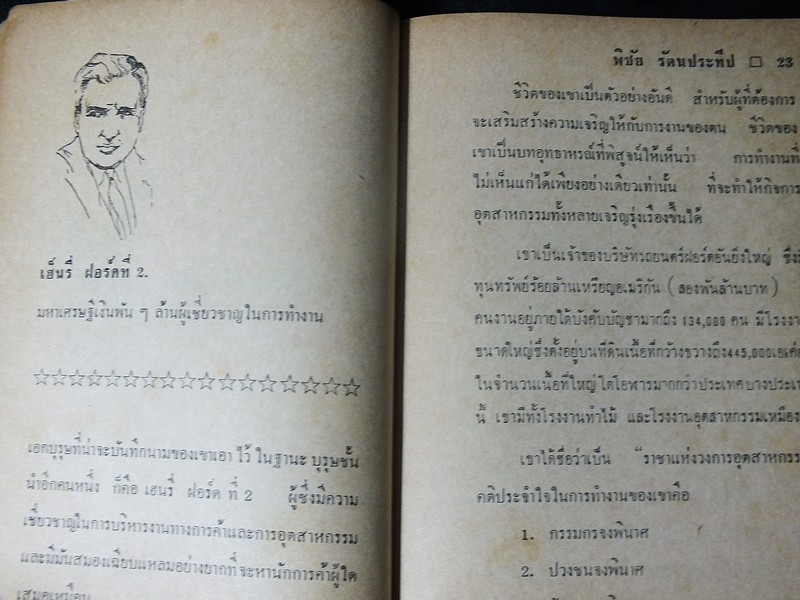 เฮ็นรี่ ฝอร์ดที่ 2.
มหาเศรษฐีเงินพัน ๆ ล้านผู้เชี่ยวชาญในการทำงาน
☆☆☆☆☆☆☆☆☆☆☆☆☆☆☆☆☆
เอกบุรุษที่น่าจะบันทึกนามของเขาเอา ไว้ ในฐานะ บุรุษชั้น
นำอีกคนหนึ่ง ก็คือ เฮนรี่ ฝอร์ด ที่ 2 ผู้ซึ่งมีความ
เชี่ยวชาญในการบริหารงานทางการค้าและการอุตสาหกรรม
และมีมันสมองเฉียบแหลมอย่างยากที่จะหานักการค้าผู้ใด
เสมอเหมือน
พิชัย รัตนประทีป □ 23
ชีวิตของเขาเป็นตัวอย่างอันดี สำหรับผู้ที่ต้องการ
จะเสริมสร้างความเจริญให้กับการงานของตน ชีวิตของ
เขาเป็นบทอุทธาหรณ์ที่พิสูจน์ให้เห็นว่า การทำงานที่
ไม่เห็นแก่ได้เพียงอย่างเดียวเท่านั้น ที่จะทำให้กิจการ
อุตสาหกรรมทั้งหลายเจริญรุ่งเรืองขึ้นได้
เขาเป็นเจ้าของบริษัทรถยนตร์ฝอร์ดอันยิ่งใหญ่ ซึ่งมี
ทุนทรัพย์ร้อยล้านเหรียญอเมริกัน (สองพันล้านบาท)
คนงานอยู่ภายใต้บังคับบัญชามากถึง 134,000 คน มีโรงงาน
ขนาดใหญ่ซึ่งตั้งอยู่บนที่ดินเนื้อที่กว้างขวางถึง445,000เอเค่อ
ในจำนวนเนื้อที่ใหญ่ โตโอฬารมากกว่าประเทศบางประเท
นี้ เขามีทั้งโรงงานทำไม้ และโรงงานอุตสาหกรรมเหมือง
เขาได้ชื่อว่าเป็น "ราชาแห่งวงการอุตสาหกรร
คติประจำใจในการทำงานของเขาคือ
1. กรรมกรจงพินาศ
2. ปวงชนจงพินาศ